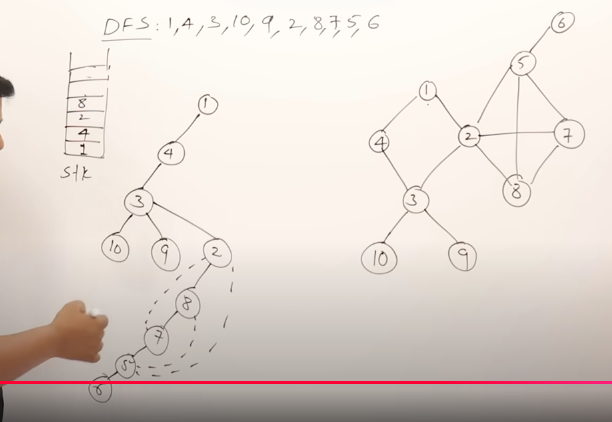 DFS: 1,4,3,10,9,2,8,7,5,6
8
2
4
1
stk
1
4
3
10
9
2
8
7
5
6
6
5
1
2
7
4
8
3
10
9